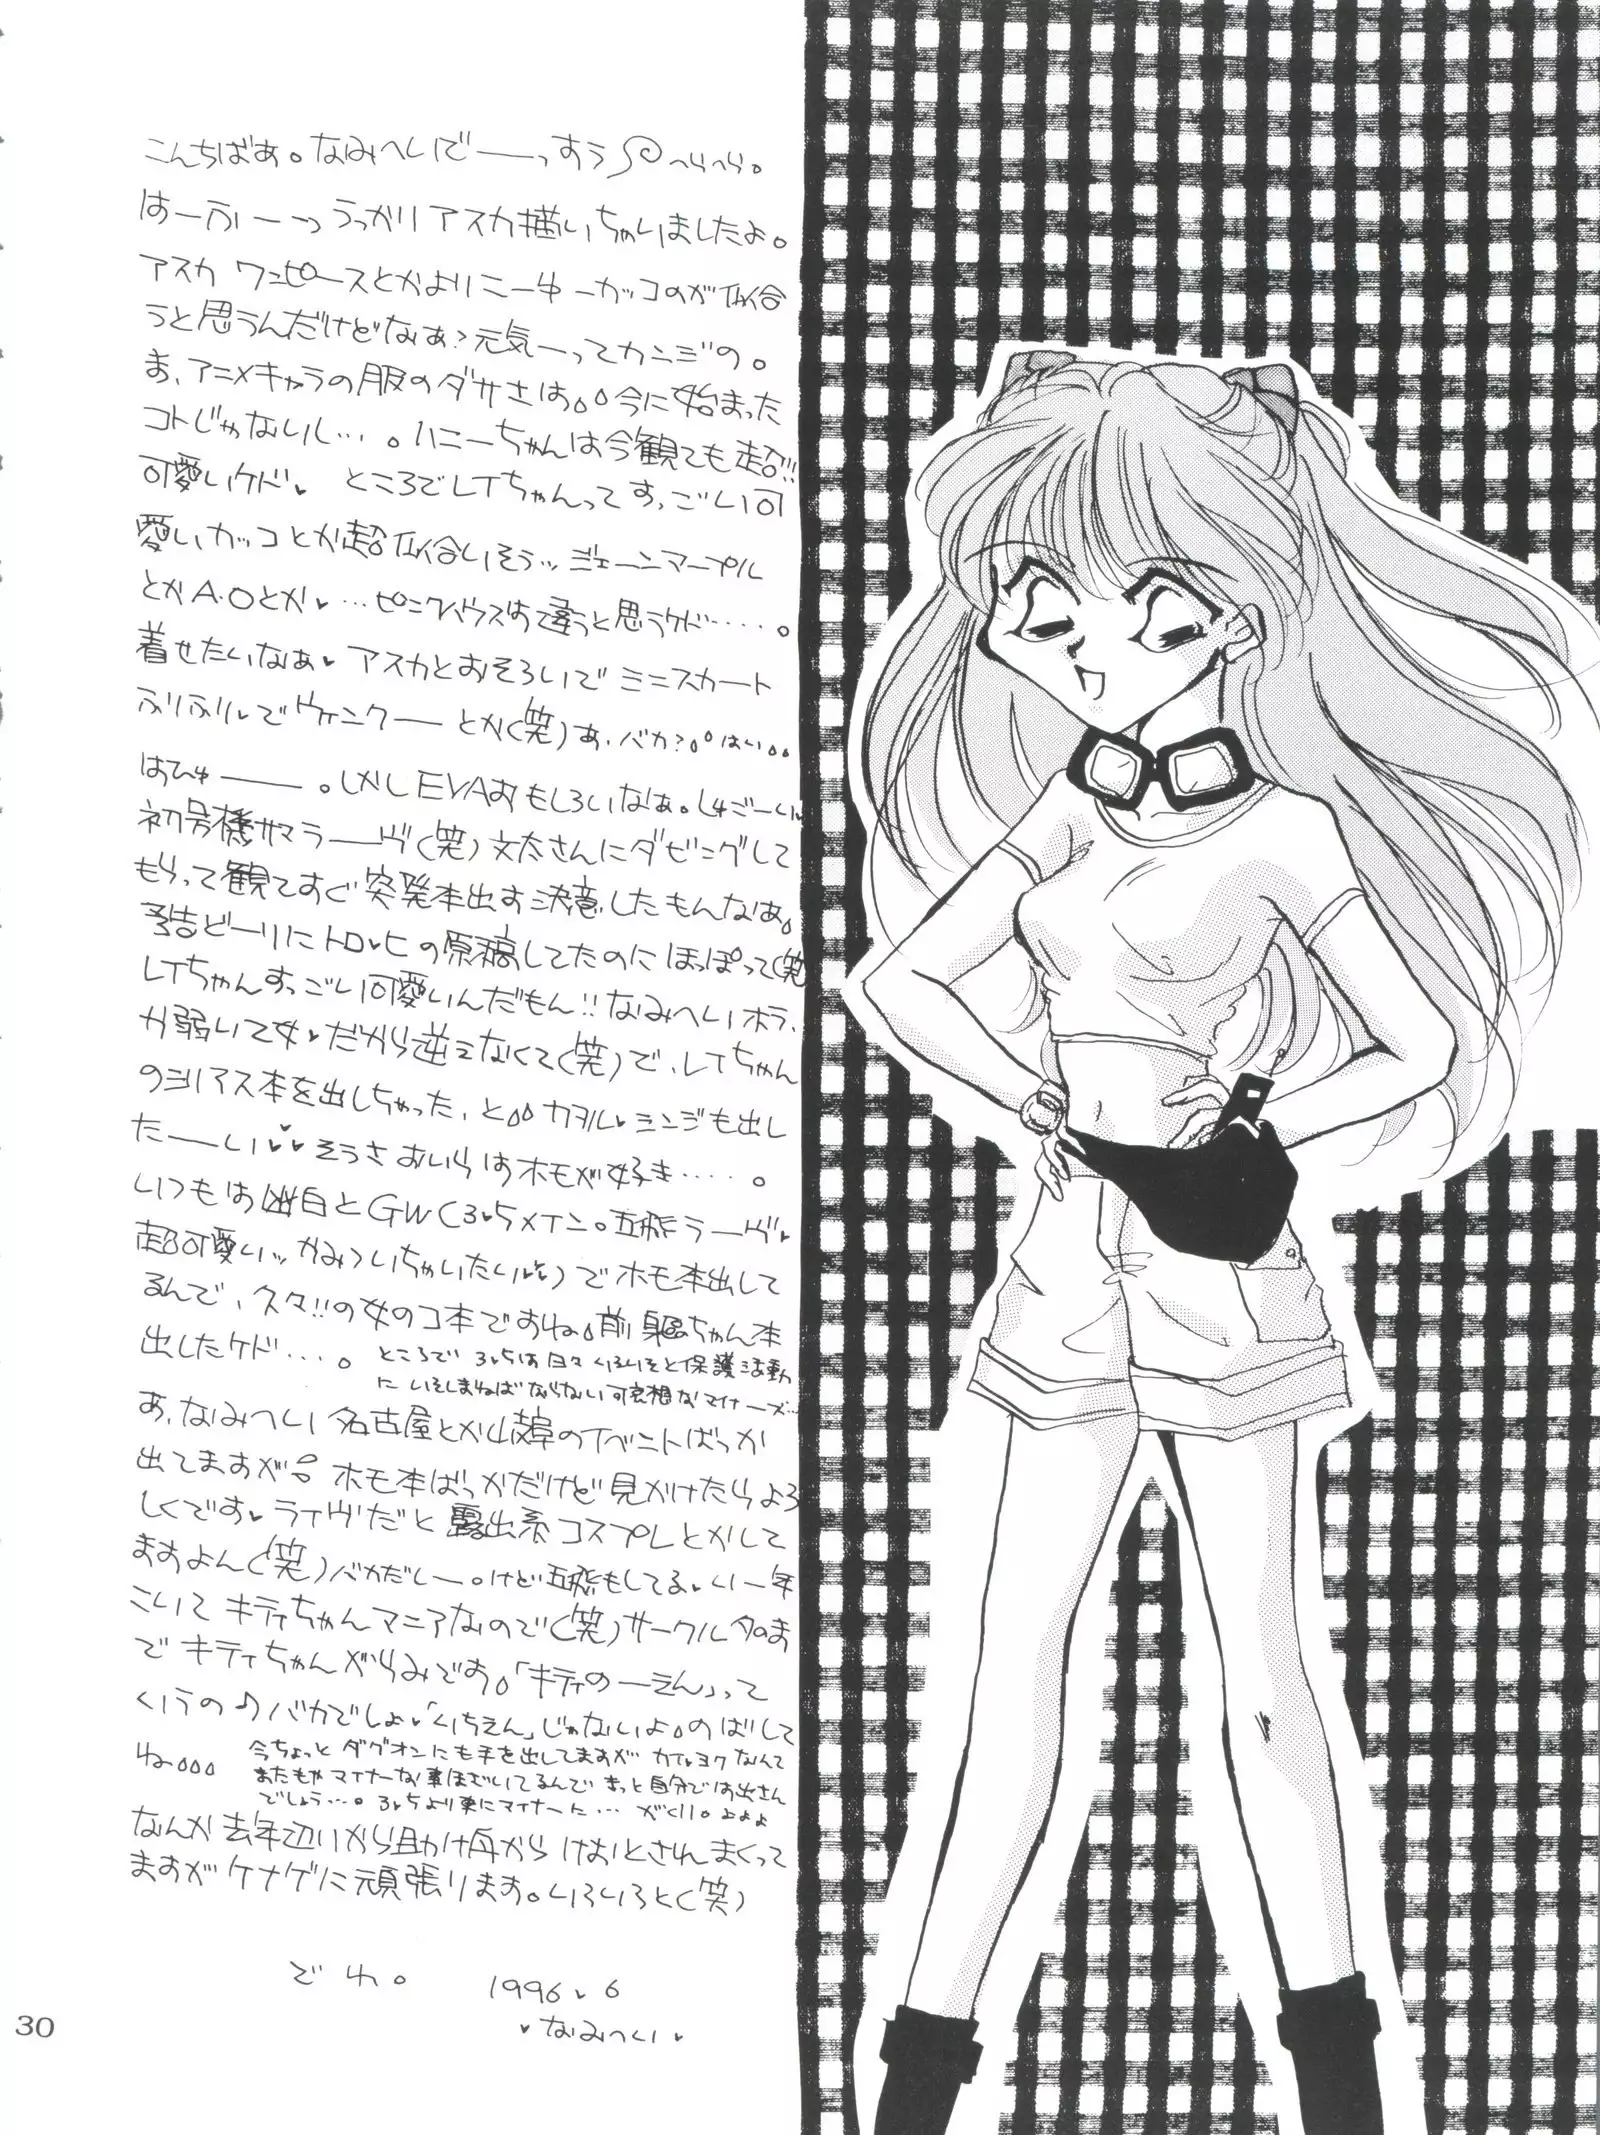 こんちばあ。なみへいでーーっすう へらへら。
はーふーーっ うっかりアスカ描いちゃいましたよ。
アスカ ワンピースとかよりこーゆーカッコのが似合
うと思うんだけどなぁ?元気ーってカンジの。
ま、アニメキャラの服のダサさは。。今に始まった
コトじゃないし…。ハニーちゃんは今観ても超!!
可愛いケド♥ ところでレイちゃんってすっごい可
愛いカッコとか超似合いそうッ ジェーンマープル
とかA・Oとか♥…ピンクハウスわ違うと思うケド・・・・。
着せたいなぁ♥アスカとおそろいでミニスカート
ふりふり♥でウインクーーとか(笑)あ、バカ?。°はい。。
はひゅーーー。しかしEVAおもしろいなぁ。しゅごーい♥
初号機サマラーーヴ(笑)文太さんにダビングして
もらって観てすぐ突発本出す決意したもんなぁ。
予告どーりにトロ・ヒの原稿してたのにほっぽって(笑
レイちゃんすっごい可愛いんだもん!!なみへいホラ、
か弱い乙女♥だから逆えなくて(笑)で、レイちゃん
のシリアス本を出しちゃった、と。。カヲル♥シンジも出し
たーーい♥♥♥そうさおいらはホモが好き・・・・・。
いつもは幽白とGW(3♥5メイン。五飛ラーーヴ♥
超可愛いッ かみついちゃいたい♥♥)でホモ本出して
るんで、久々!!の女のコ本ですね。前軀ちゃん本
出したケド・・・。ところで 3♥5は日々いろいろと保護活動
にいそしまねばならない可哀想なマイナーズ…
あ、なみへい 名古屋とか岐阜のイベントばっか
出てますが。ホモ本ばっかだけど見かけたらよろ
しくです♥ライヴだと露出系コスプレとかして
ますよん(笑)バカだしー。けど五飛もしてる♥いー年
こいてキティちゃんマニアなので(笑)サークル名のま
でキティちゃんがらみです。「キティのーえん」って
いうの♪バカでしょ♥「いちえん」じゃないよ。のばして
ね。。。 今ちょっと ダグオンにも手を出してますが カイ♥ヨクなんて
またもやマイナーな事ほざいてるんで きっと自分では出さん
でしょう…。3♥5より更にマイナーだ… がくり。よよよ
なんか去年辺りから助け舟からけおとされまくって
ますがケナゲに頑張ります。いろいろと(笑)
でわ。 1996.6
♥なみへい♥
30